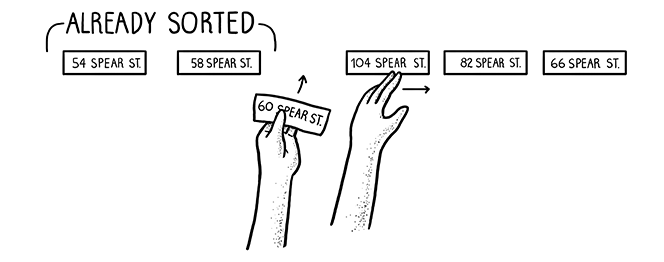 ALREADY SORTED
54 SPEAR ST.
58 SPEAR ST.
60 SPEAR ST.
104 SPEAR ST.
82 SPEAR ST.
66 SPEAR ST.